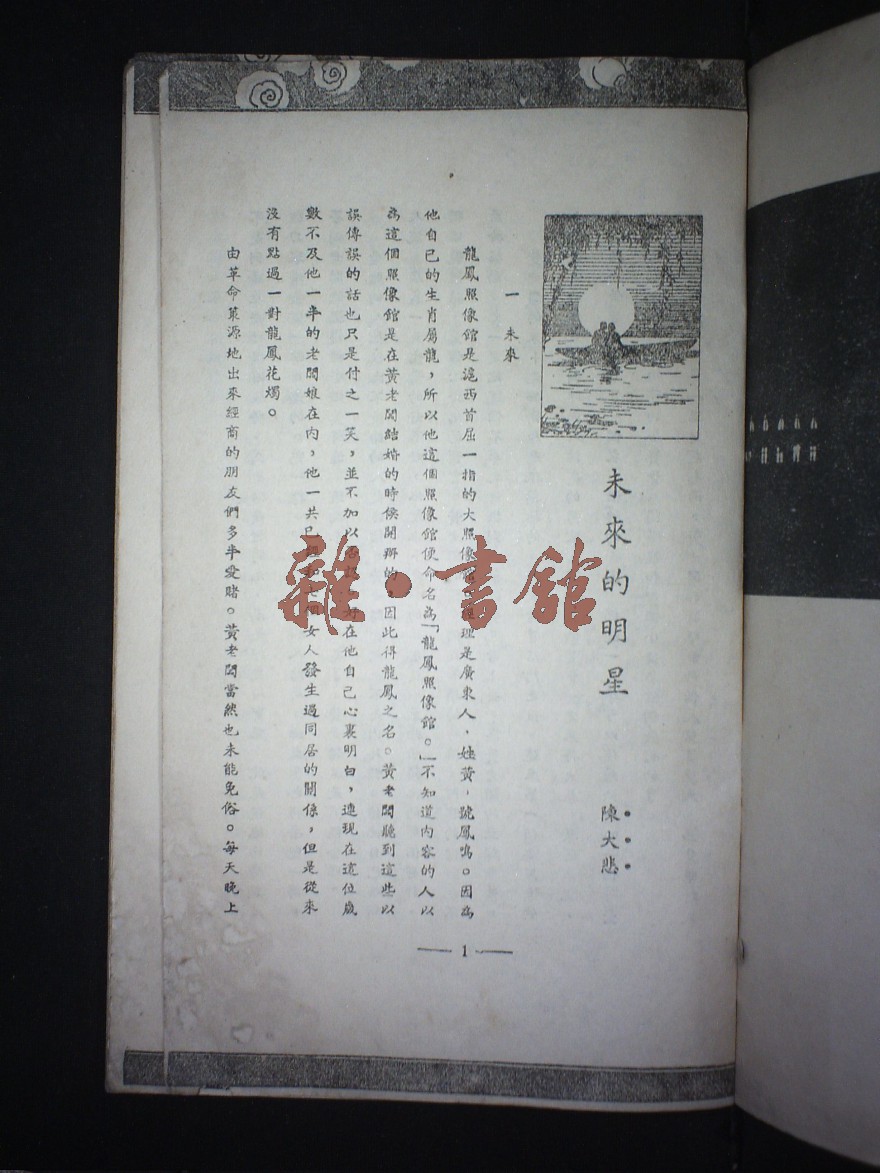 未來的明星
陳大悲
一 未來
龍鳳照像館是滬西首屈一指的大照像館理是廣東人，姓黃，號鳳鳴。因為
他自己的生肖屬龍，所以他這個照像館便命名為「龍鳳照像館。」不知道內容的人以
為這個照像館是在黃老闆結婚的時候開辦的因此得龍鳳之名。黃老闆聽到這些以
誤傳誤的話也只是付之一笑，並不加以在他自己心裏明白，連現在這位歲
數不及他一半的老闆娘在內，他一共已女人發生過同居的關係，但是從來
沒有點過一對龍鳳花燭。
由革命策源地出來經商的朋友們多半愛賭。黃老闆當然也未能免俗。每天晚上
1
雜·書館